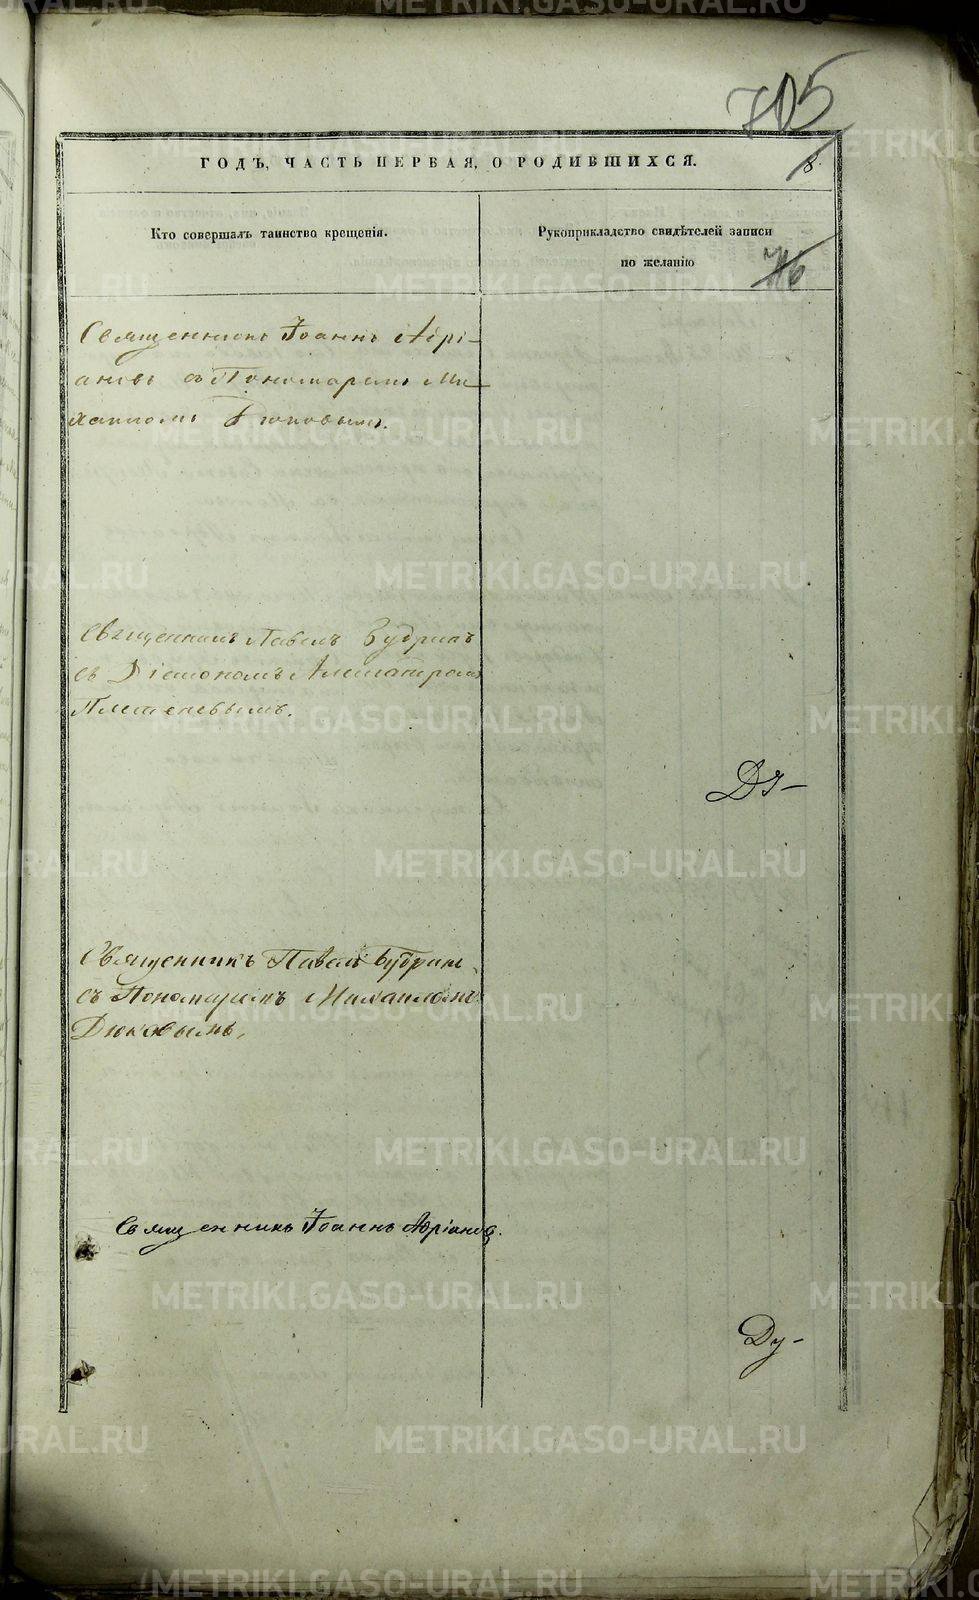 705
ГОДЪ, ЧАСТЬ ПЕРВАЯ, О РОДИВШИХСЯ.
8.
Кто совершалъ таинство крещенія.
Рукоприкладство свидѣтелей записи
по желанію
Священникъ Іоаннъ Адрі-
ановъ съ Пономаремъ Ми-
хаиломъ Дюковымъ.
Священникъ Павелъ Будринъ
съ Діакономъ
Плетеневымъ.
Священникъ Павелъ Будринъ
съ Пономаремъ Михаиломъ
Дюковымъ,
Священникъ Іоаннъ Адріановъ.
METRIKI.GASO-URAL.RU